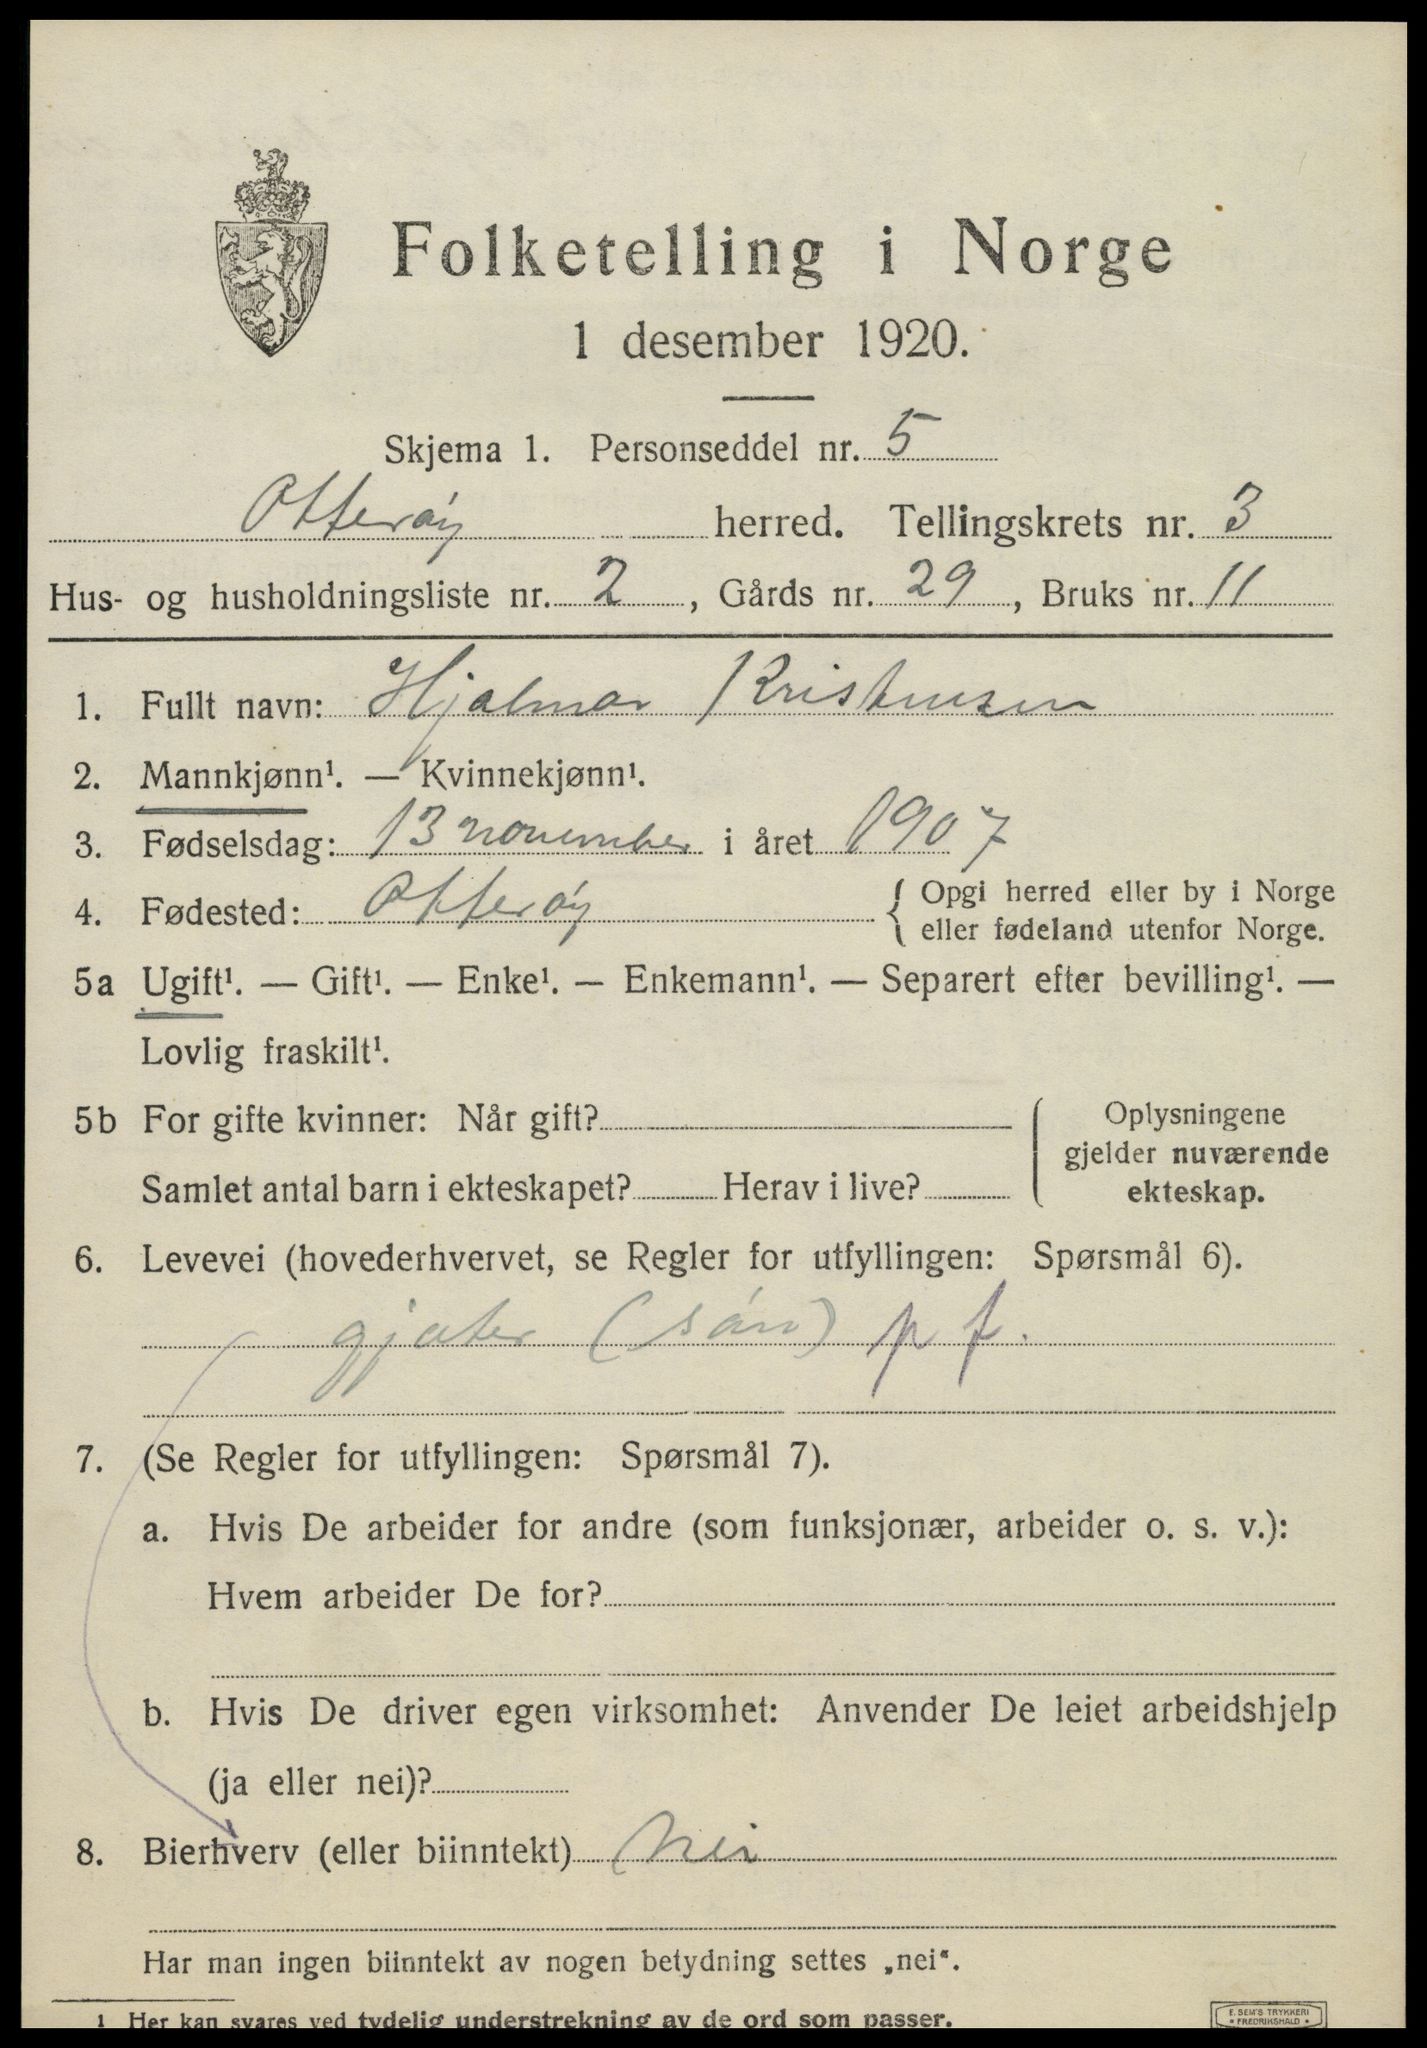 Folketelling i Norge
1 desember 1920.
Skjema 1. Personseddel nr. 5
Otterøy herred. Tellingskrets nr. 3
Hus- og husholdningsliste nr. 2, Gårds nr. 29, Bruks nr. 11
1. Fullt navn: Hjalmar Kristensen
2. Mannkjønn¹. — Kvinnekjønn¹.
3. Fødselsdag: 13 november i året 1907
4. Fødested: Otterøy { Opgi herred eller by i Norge
eller fødeland utenfor Norge.
5a Ugift¹. — Gift¹. — Enke¹. — Enkemann¹. — Separert efter bevilling¹. —
Lovlig fraskilt¹.
5b For gifte kvinner: Når gift?
Samlet antal barn i ekteskapet? Herav i live?
Oplysningene
gjelder nuværende
ekteskap.
6. Levevei (hovederhvervet, se Regler for utfyllingen: Spørsmål 6).
gjæter (søn) p f.
7. (Se Regler for utfyllingen: Spørsmål 7).
a. Hvis De arbeider for andre (som funksjonær, arbeider o. s. v.):
Hvem arbeider De for?
b. Hvis De driver egen virksomhet: Anvender De leiet arbeidshjelp
(ja eller nei)?
8. Bierhverv (eller biinntekt) Nei
Har man ingen biinntekt av nogen betydning settes „nei“.
1 Her kan svares ved tydelig understrekning av de ord som passer.
E. SEM'S TRYKKERI
* FREDRIKSHALD *